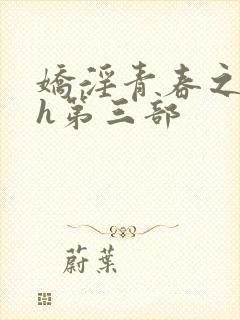 嬌淫青春之
h第三部
蔚葉